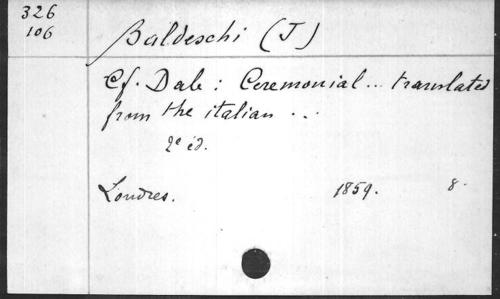 326
106
Baldeschi (J)
Cf. Dale : Ceremonial ... translated
from the italian ...
2e éd.
Londres. 1859. 8-